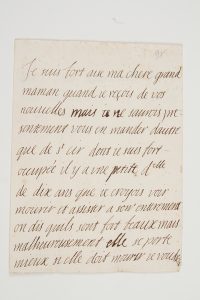 Je suis fort aise ma chere grand
maman quand je reçois de vos
nouvelles mais je ne saurois pre
sentement vous en mander dautre
que de st cir dont je suis fort
occupée il y a une petite delle
de dix ans que je croyois voir
mourir et assister a son enterement
on dis quils sont fort beaux mais
malheureusement elle se porte
mieux si elle doit mourir je voudrois